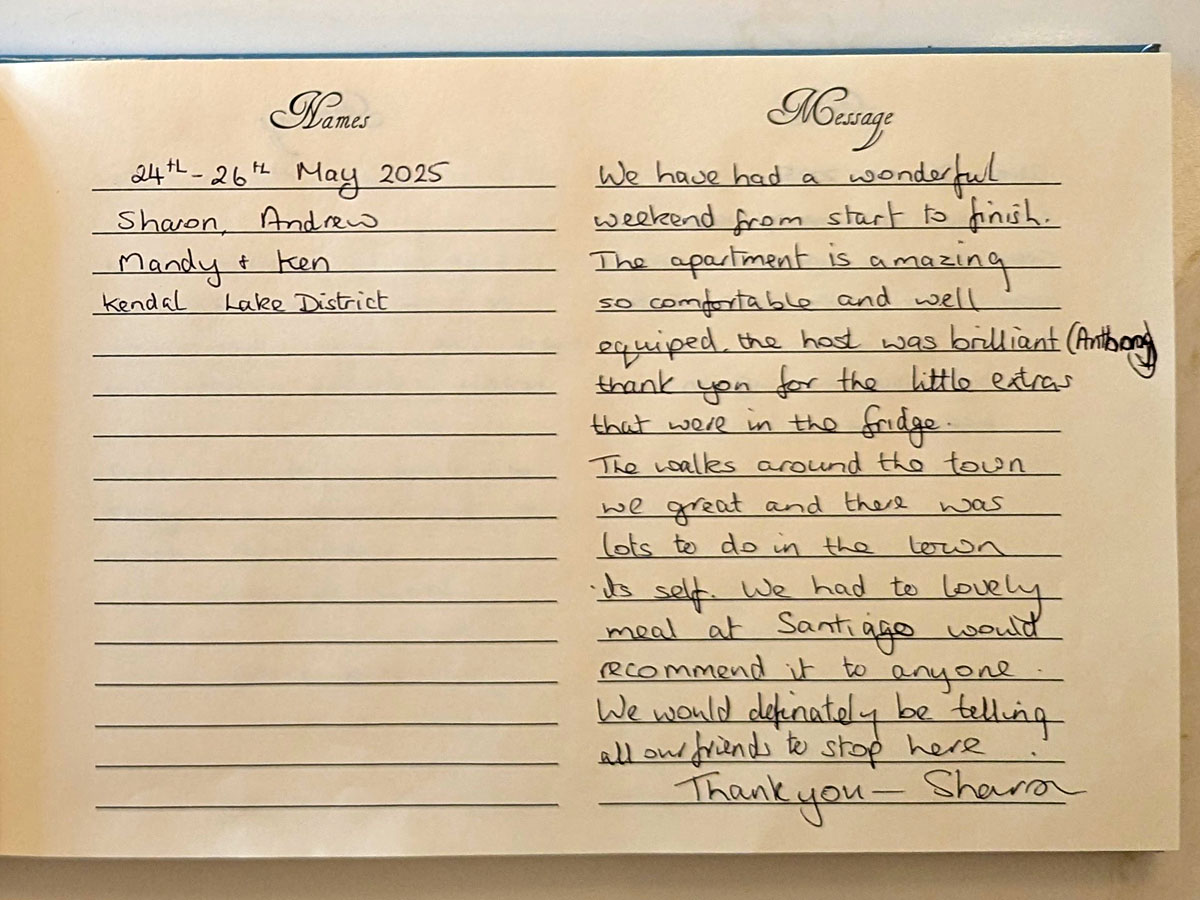 Names
24th - 26th May 2025
Sharon, Andrew
Mandy & Ken
Kendal Lake District
Message
We have had a wonderful
weekend from start to finish.
The apartment is amazing
so comfortable and well
equiped. the host was brilliant (Anthony)
thank you for the little extras
that were in the fridge.
The walks around the town
we great and there was
lots to do in the town
its self. We had to lovely
meal at Santiago would
recommend it to anyone.
We would definately be telling
all our friends to stop here.
Thank you - Sharon